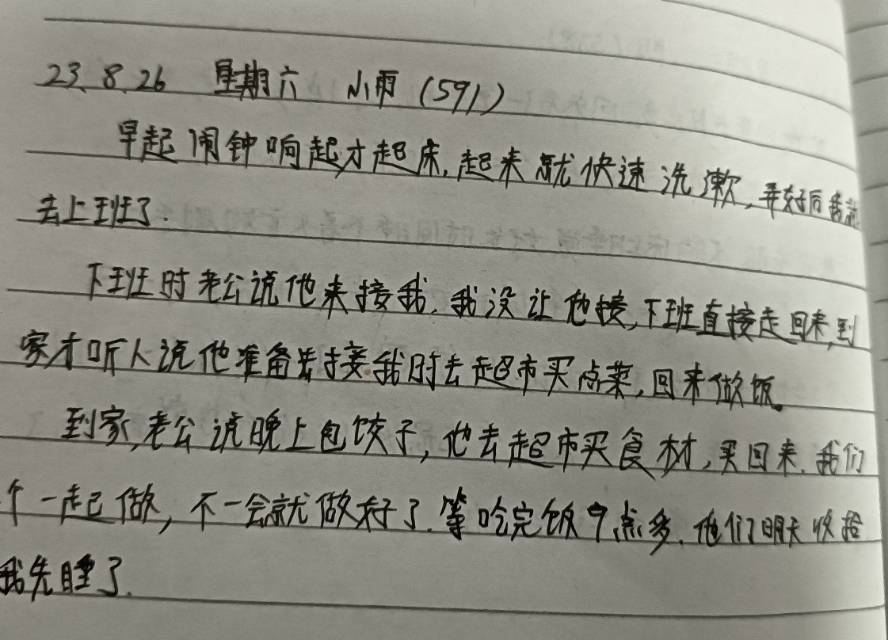 23.8.26 星期六 小雨(591)
早起闹钟响起才起床,起来就快速洗漱,弄好后我就
去上班了.
下班时老公说他来接我,我没让他接,下班直接走回来,到
家才听人说他准备去接我时去超市买点菜,回来做饭。
到家,老公说晚上包饺子,他去超市买食材,买回来.我们
个一起做,不一会就做好了.等吃完饭9点多.他们明天收拾
我先睡了.